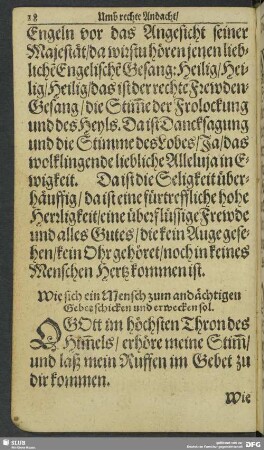 18 Umb rechte Andacht/
Engeln vor das Angesicht seiner
Majestät/da wirstu hören jenen lieb-
lichē Engelischē Gesang: Heilig/Hei-
lig/Heilig/das ist der rechte Frewden-
Gesang/die Stim̃e der Frolockung
und des Heyls. Da ist Dancksagung
und die Stimme des Lobes/Ja/das
wolklingende liebliche Alleluja in E-
wigkeit. Da ist die Seligkeit über-
häuffig/da ist eine fürtreffliche hohe
Herzligkeit/eine überflüssige Frewde
und alles Gutes/die kein Auge gese-
hen/kein Ohr gehöret/noch in keines
Menschen Hertz kommen ist.
Wie sich ein Mensch zum andächtigen
Gebet schicken und erwecken sol.
O GOtt im höchsten Thron des
Him̃els/erhöre meine Stim̃/
und laß mein Ruffen im Gebet zu
dir kommen.
Wie
SLUB
DFG